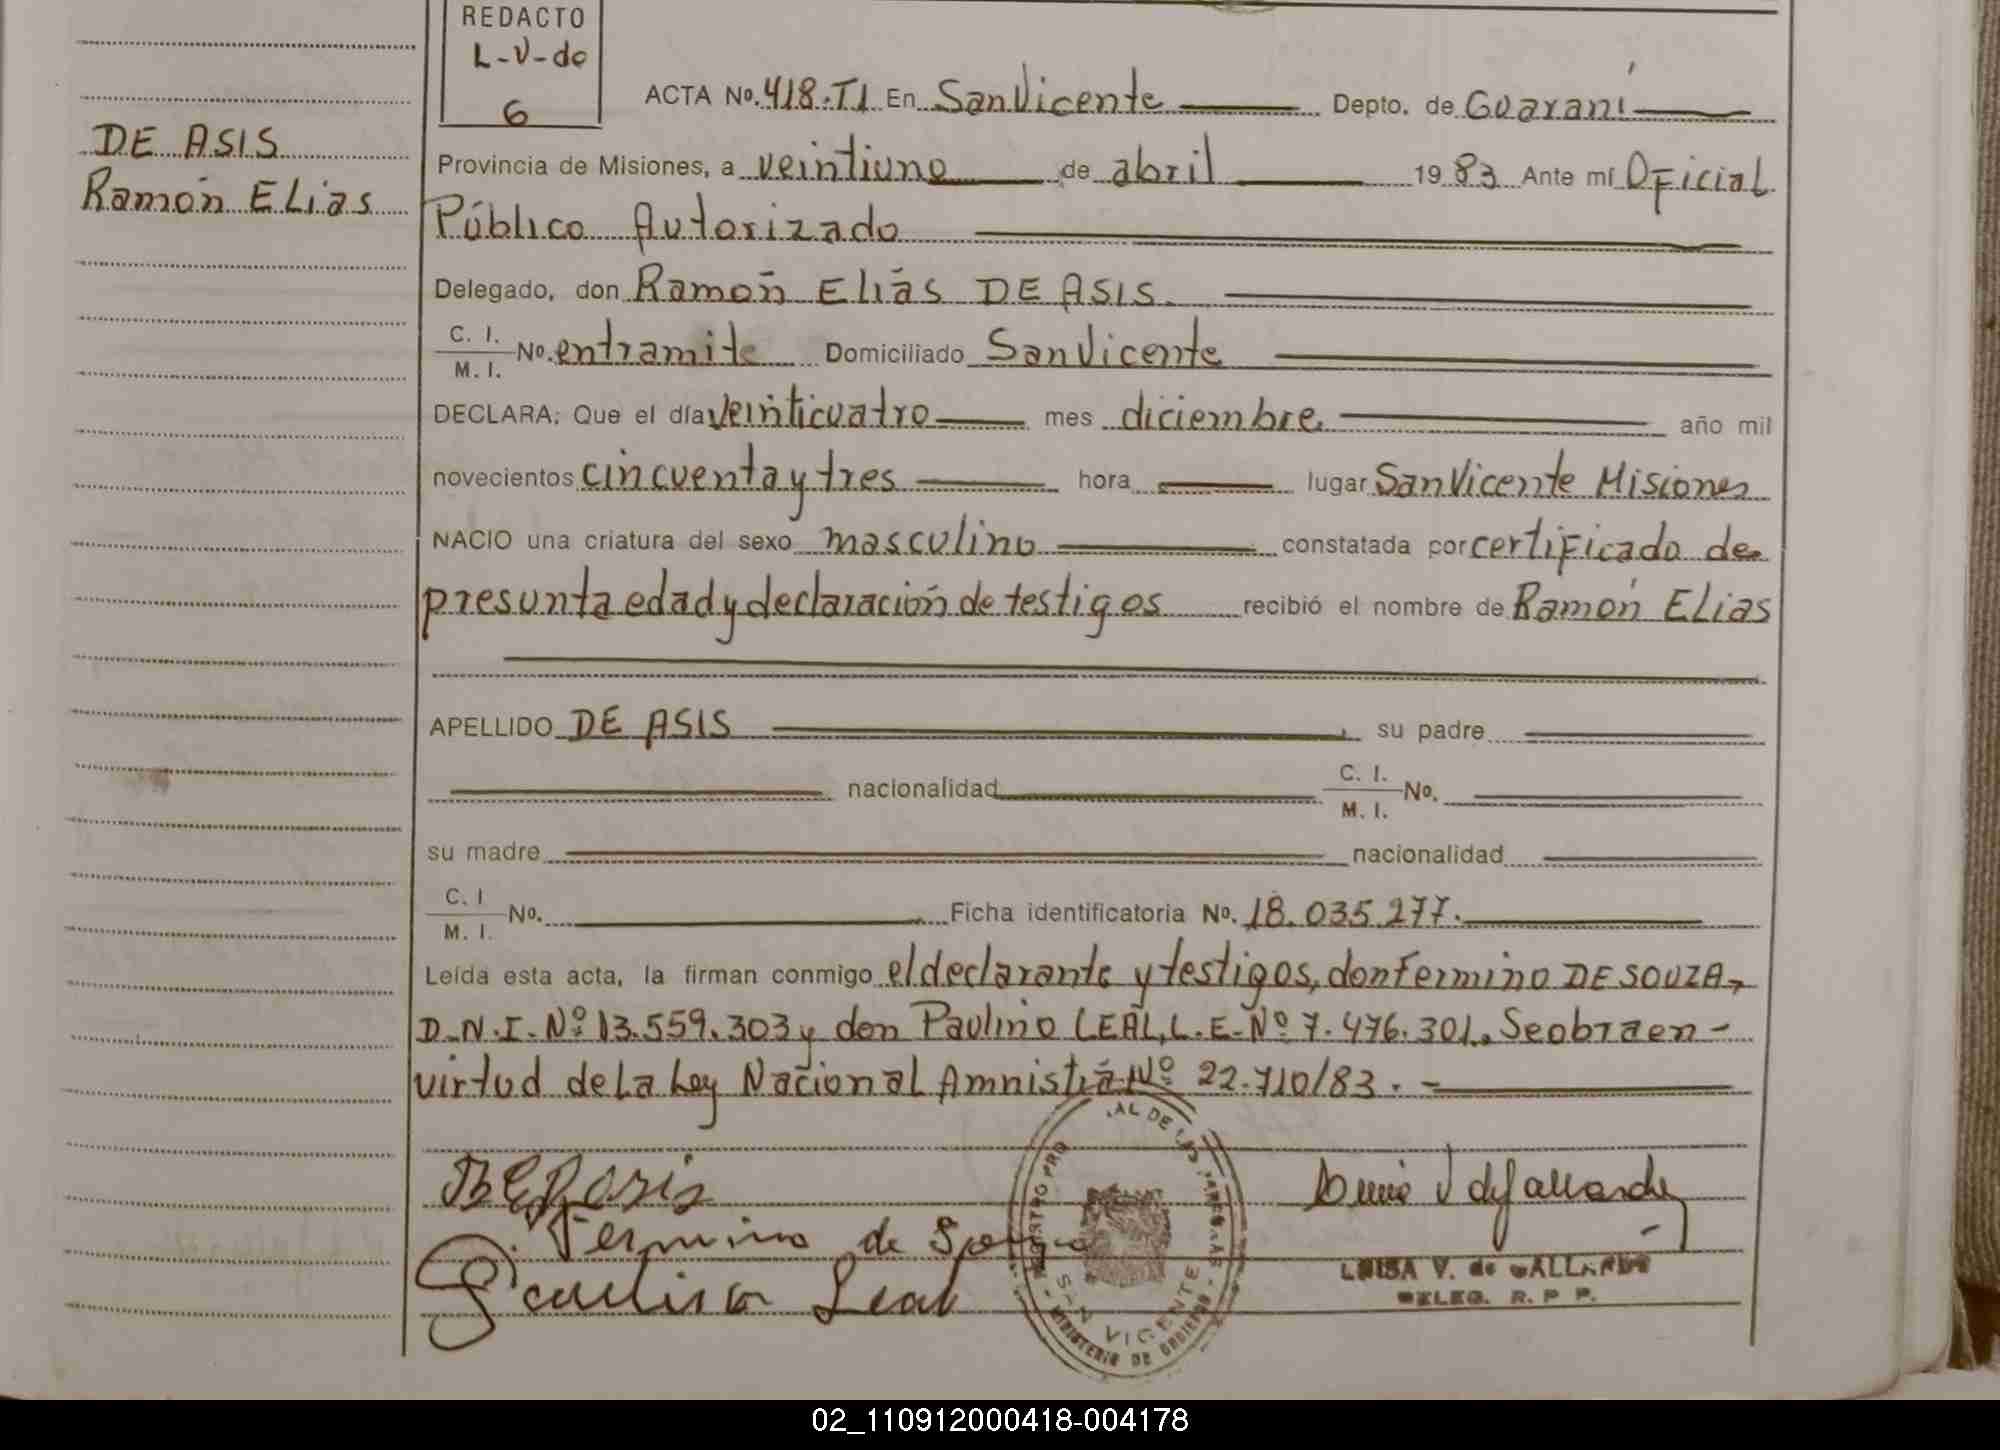 REDACTO
L-V-do
6
DE ASIS
Ramón ELias
ACTA No. 418.T1 En San Vicente Depto. de Guaraní
Provincia de Misiones, a veintiuno de abril 1983 Ante mí Oficial
Público Autorizado
Delegado, don Ramón Elías DE ASIS.
C. I.
M. I. No. en tramite Domiciliado San Vicente
DECLARA: Que el día veinticuatro mes diciembre año mil
novecientos cincuenta y tres hora lugar San Vicente Misiones
NACIO una criatura del sexo masculino constatada por certificado de
presunta edad y declaración de testigos recibió el nombre de Ramón ELias
APELLIDO DE ASIS, su padre
nacionalidad C. I.
M. I. No.
su madre nacionalidad
C. I
M. I. No. Ficha identificatoria No. 18.035.277.
Leída esta acta, la firman conmigo el declarante y testigos, don Fermino DE SOUZA,
D.N.I. Nº 13.559.303 y don Paulino LEAL, L.E. Nº 7.476.301. Se obra en -
virtud de La Ley Nacional Amnistiá Nº 22.710/83. -
Fermino de Souza
Paulino Leal
LUISA V. de GALLARDO
DELEG. R. P P.
SAN VICENTE
MINISTERIO DE GOBIERNO
02_110912000418-004178